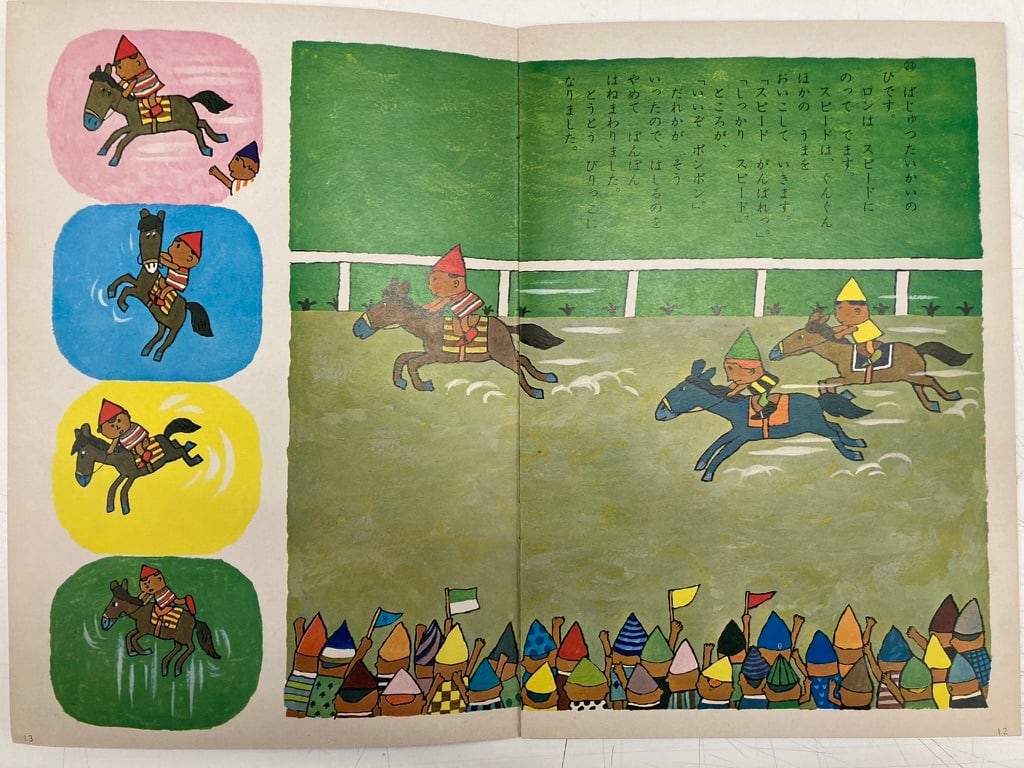 ㉓ ばじゅつたいかいの
ひです。
ロンは スピードに
のって でます。
スピードは、ぐんぐん
ほかの うまを
おいこして いきます。
「スピード がんばれっ。」
「しっかり スピード。」
ところが、
「いいぞ ポンポン。」
だれかが そう
いったので、はしるのを
やめて ぽんぽん
はねまわりました。
とうとう びりっこに
なりました。
13
12